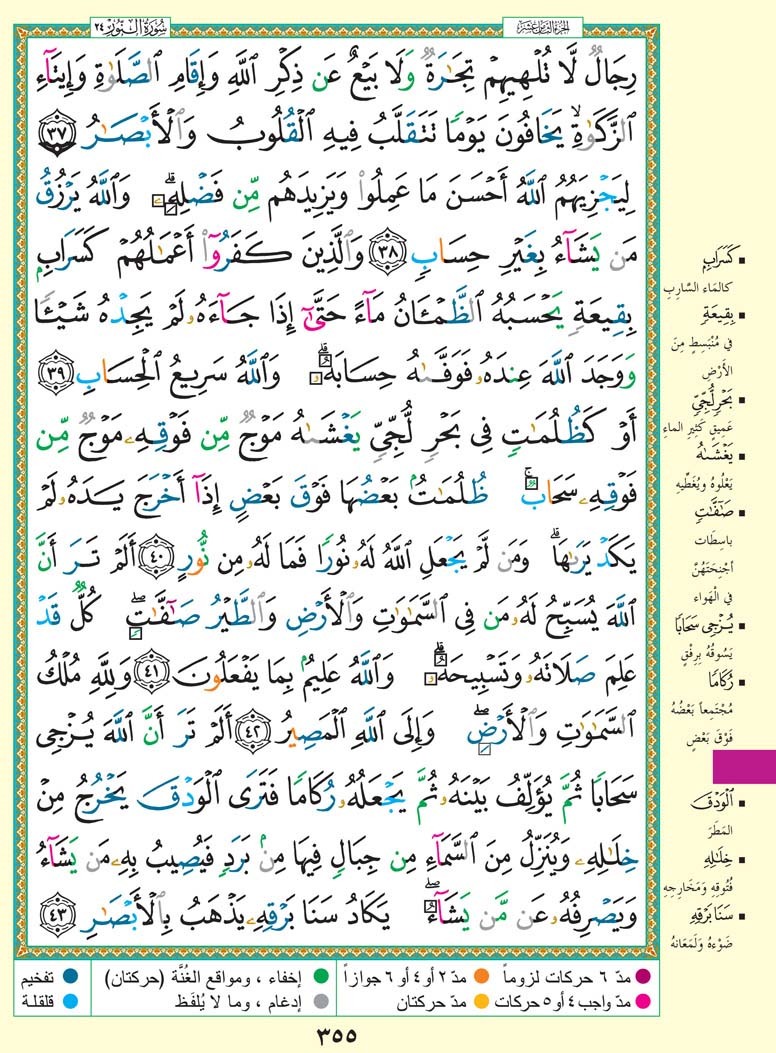 سُورَةُ النُّورِ ٢٤
الجُزءُ الثَّامِنُ عَشَرَ
رِجَالٌ لَّا تُلْهِيهِمْ تِجَٰرَةٌ وَلَا بَيْعٌ عَن ذِكْرِ ٱللَّهِ وَإِقَامِ ٱلصَّلَوٰةِ وَإِيتَآءِ
ٱلزَّكَوٰةِ ۙ يَخَافُونَ يَوْمًا تَتَقَلَّبُ فِيهِ ٱلْقُلُوبُ وَٱلْأَبْصَٰرُ ٣٧
لِيَجْزِيَهُمُ ٱللَّهُ أَحْسَنَ مَا عَمِلُوا۟ وَيَزِيدَهُم مِّن فَضْلِهِۦ ۗ وَٱللَّهُ يَرْزُقُ
مَن يَشَآءُ بِغَيْرِ حِسَابٍ ٣٨ وَٱلَّذِينَ كَفَرُوٓا۟ أَعْمَٰلُهُمْ كَسَرَابٍۭ
بِقِيعَةٍ يَحْسَبُهُ ٱلظَّمْـَٔانُ مَآءً حَتَّىٰٓ إِذَا جَآءَهُۥ لَمْ يَجِدْهُ شَيْـًٔا
وَوَجَدَ ٱللَّهَ عِندَهُۥ فَوَفَّىٰهُ حِسَابَهُۥ ۗ وَٱللَّهُ سَرِيعُ ٱلْحِسَابِ ٣٩
أَوْ كَظُلُمَٰتٍ فِى بَحْرٍ لُّجِّىٍّ يَغْشَىٰهُ مَوْجٌ مِّن فَوْقِهِۦ مَوْجٌ مِّن
فَوْقِهِۦ سَحَابٌ ۚ ظُلُمَٰتٌۢ بَعْضُهَا فَوْقَ بَعْضٍ إِذَآ أَخْرَجَ يَدَهُۥ لَمْ
يَكَدْ يَرَىٰهَا ۗ وَمَن لَّمْ يَجْعَلِ ٱللَّهُ لَهُۥ نُورًا فَمَا لَهُۥ مِن نُّورٍ ٤٠ أَلَمْ تَرَ أَنَّ
ٱللَّهَ يُسَبِّحُ لَهُۥ مَن فِى ٱلسَّمَٰوَٰتِ وَٱلْأَرْضِ وَٱلطَّيْرُ صَٰٓفَّٰتٍ ۖ كُلٌّ قَدْ
عَلِمَ صَلَاتَهُۥ وَتَسْبِيحَهُۥ ۗ وَٱللَّهُ عَلِيمٌۢ بِمَا يَفْعَلُونَ ٤١ وَلِلَّهِ مُلْكُ
ٱلسَّمَٰوَٰتِ وَٱلْأَرْضِ ۖ وَإِلَى ٱللَّهِ ٱلْمَصِيرُ ٤٢ أَلَمْ تَرَ أَنَّ ٱللَّهَ يُزْجِى
سَحَابًا ثُمَّ يُؤَلِّفُ بَيْنَهُۥ ثُمَّ يَجْعَلُهُۥ رُكَامًا فَتَرَى ٱلْوَدْقَ يَخْرُجُ مِنْ
خِلَٰلِهِۦ وَيُنَزِّلُ مِنَ ٱلسَّمَآءِ مِن جِبَالٍ فِيهَا مِنۢ بَرَدٍ فَيُصِيبُ بِهِۦ مَن يَشَآءُ
وَيَصْرِفُهُۥ عَن مَّن يَشَآءُ ۖ يَكَادُ سَنَا بَرْقِهِۦ يَذْهَبُ بِٱلْأَبْصَٰرِ ٤٣
■ كَسَرَابٍ
كالماء السَّارِبِ
■ بِقِيعَةٍ
في مُنْبَسِطٍ مِنَ
الأَرْضِ
■ بَحْرٍ لُّجِّيٍّ
عَمِيقٍ كَثِيرِ الماءِ
■ يَغْشَىٰهُ
يَعْلُوهُ ويُغَطِّيهِ
■ صَٰٓفَّٰتٍ
باسِطَات
أَجْنِحَتَهُنَّ
في الهَواء
■ يُزْجِى سَحَابًا
يَسُوقُهُ بِرِفْقٍ
■ رُكَامًا
مُجْتَمِعاً بَعْضُهُ
فَوْقَ بَعْضٍ
■ ٱلْوَدْقَ
المَطَرَ
■ خِلَٰلِهِ
فُتُوقِهِ وَمَخَارِجِهِ
■ سَنَا بَرْقِهِ
ضَوْءُهُ ولَمَعَانُهُ
● مدّ ٦ حركات لزوماً ● مدّ ٢ أو ٤ أو ٦ جوازاً ● إخفاء ، ومواقع الغُنَّة (حركتان) ● تفخيم
● مدّ واجب ٤ أو ٥ حركات ● مدّ حركتان ● إدغام ، وما لا يُلفَظ ● قلقلة
٣٥٥